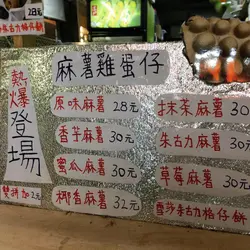 28元
麻薯雞蛋仔
熱爆登場
原味麻薯 28元
香芋麻薯 30元
蜜瓜麻薯 30元
椰香麻薯 32元
雙拼加2元
抹茶麻薯 30
朱古力麻薯 30
草莓麻薯 30元
雪芳朱古力格仔餅